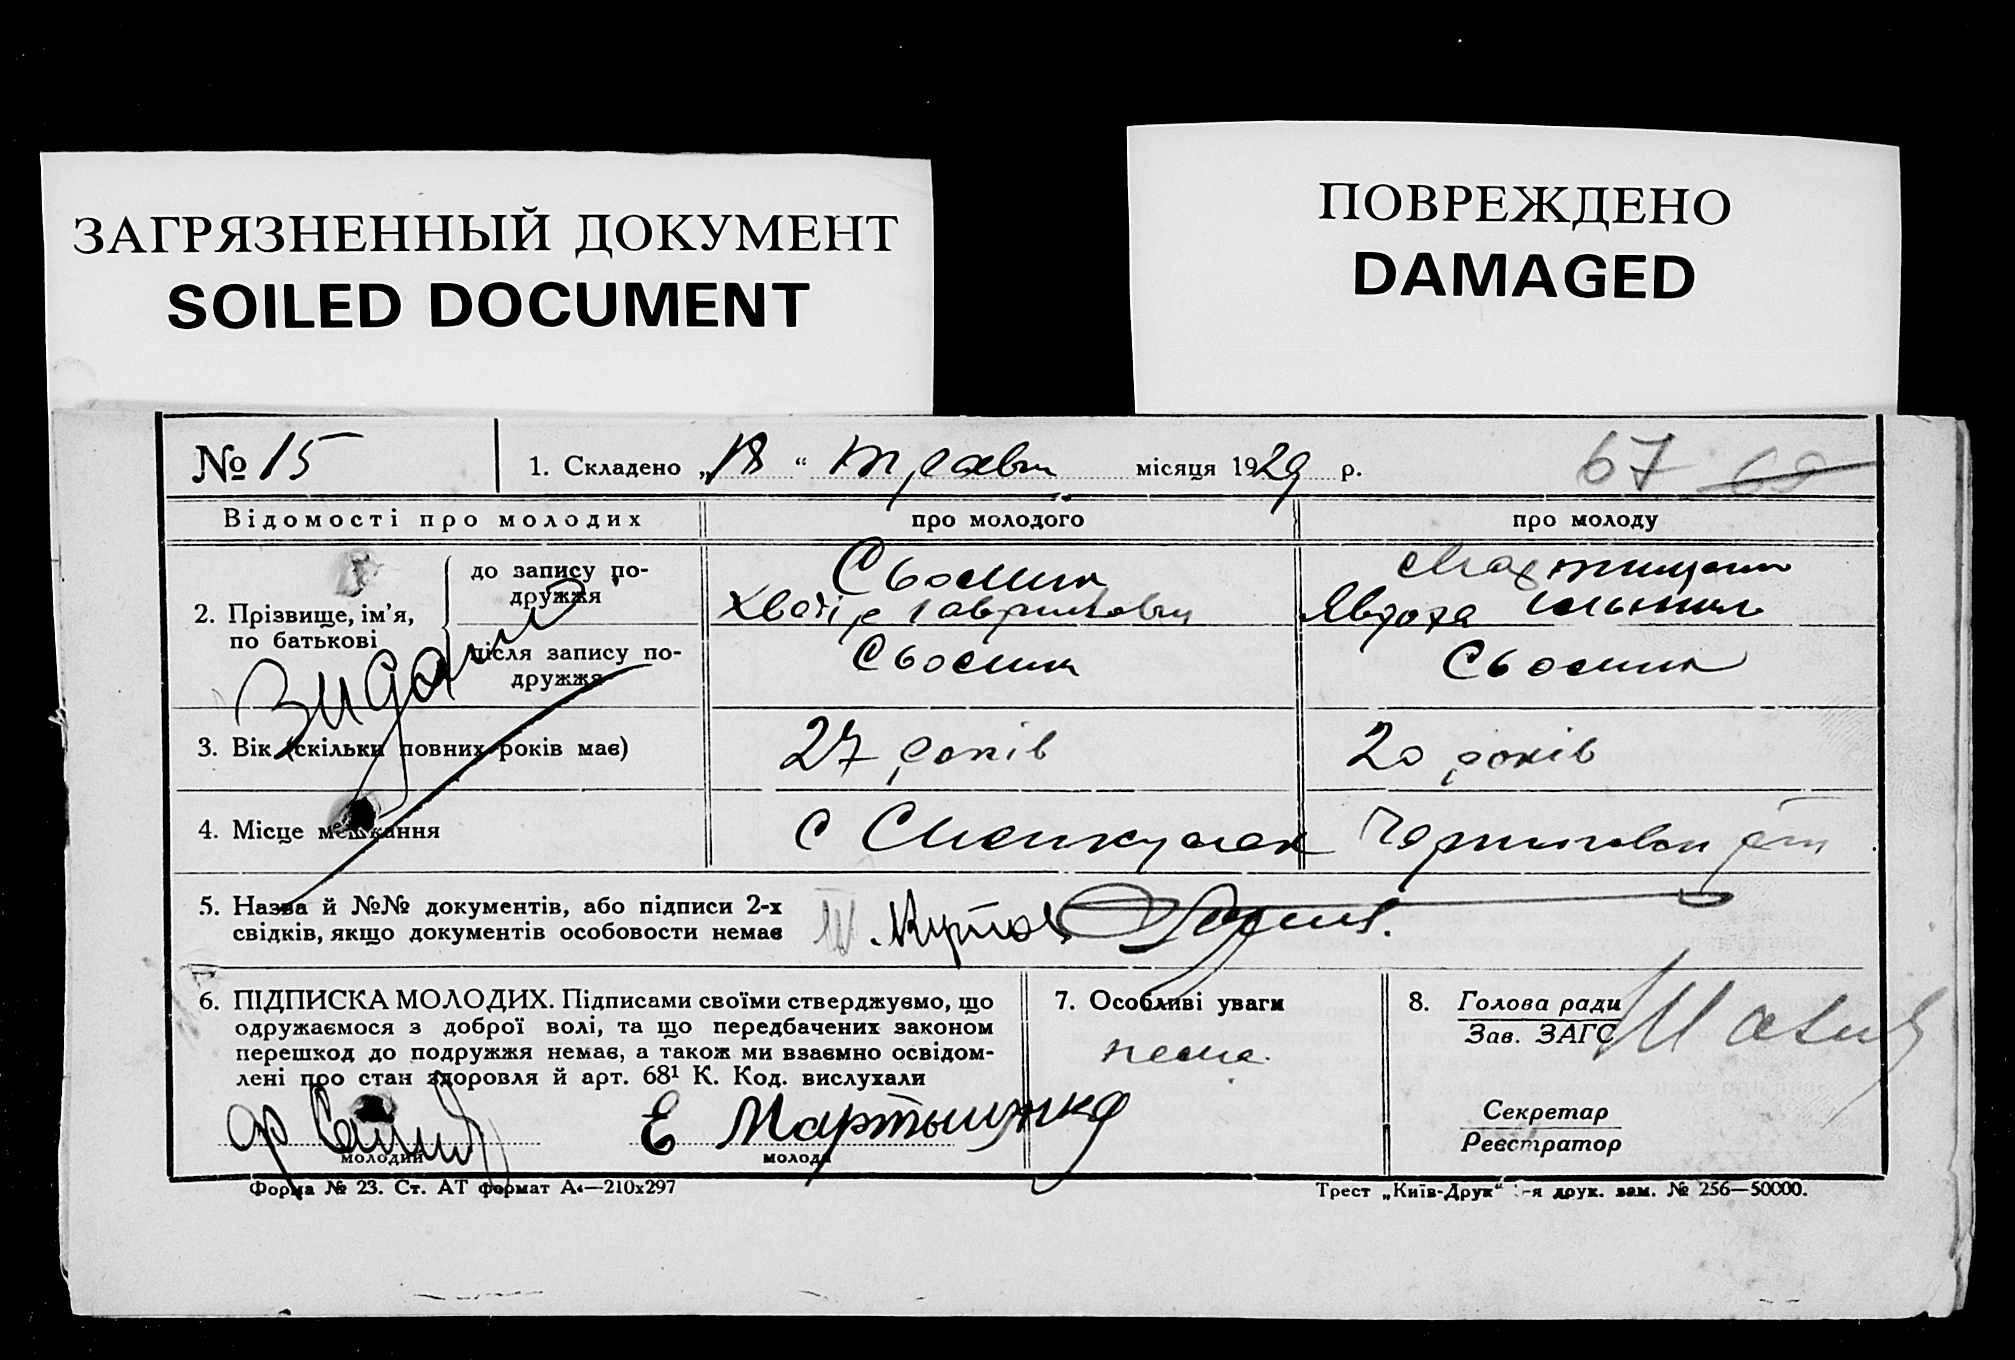 ЗАГРЯЗНЕННЫЙ ДОКУМЕНТ
SOILED DOCUMENT
ПОВРЕЖДЕНО
DAMAGED
№ 15
1. Складено „18“ травня місяця 1929 р.
67 69
Відомості про молодих
про молодого
про молоду
2. Прізвище, ім'я, по батькові
до запису по-
дружжя
Сьомик
Явдоха
після запису по-
дружжя
Сьомик
Сьомик
Видано
3. Вік (скільки повних років має)
27 років
20 років
4. Місце мешкання
с
5. Назва й №№ документів, або підписи 2-х
свідків, якщо документів особовости немає
6. ПІДПИСКА МОЛОДИХ. Підписами своїми стверджуємо, що
одружаємося з доброї волі, та що передбачених законом
перешкод до подружжя немає, а також ми взаємно освідом-
лені про стан здоровля й арт. 68¹ К. Код. вислухали
Е Мартыненко
молодий
молода
7. Особливі уваги
нема.
8. Голова ради
Зав. ЗАГС
Секретар
Реєстратор
Форма № 23. Ст. АТ формат А4—210х297
Трест „Київ-Друк“ -я друк. зам. № 256—50000.